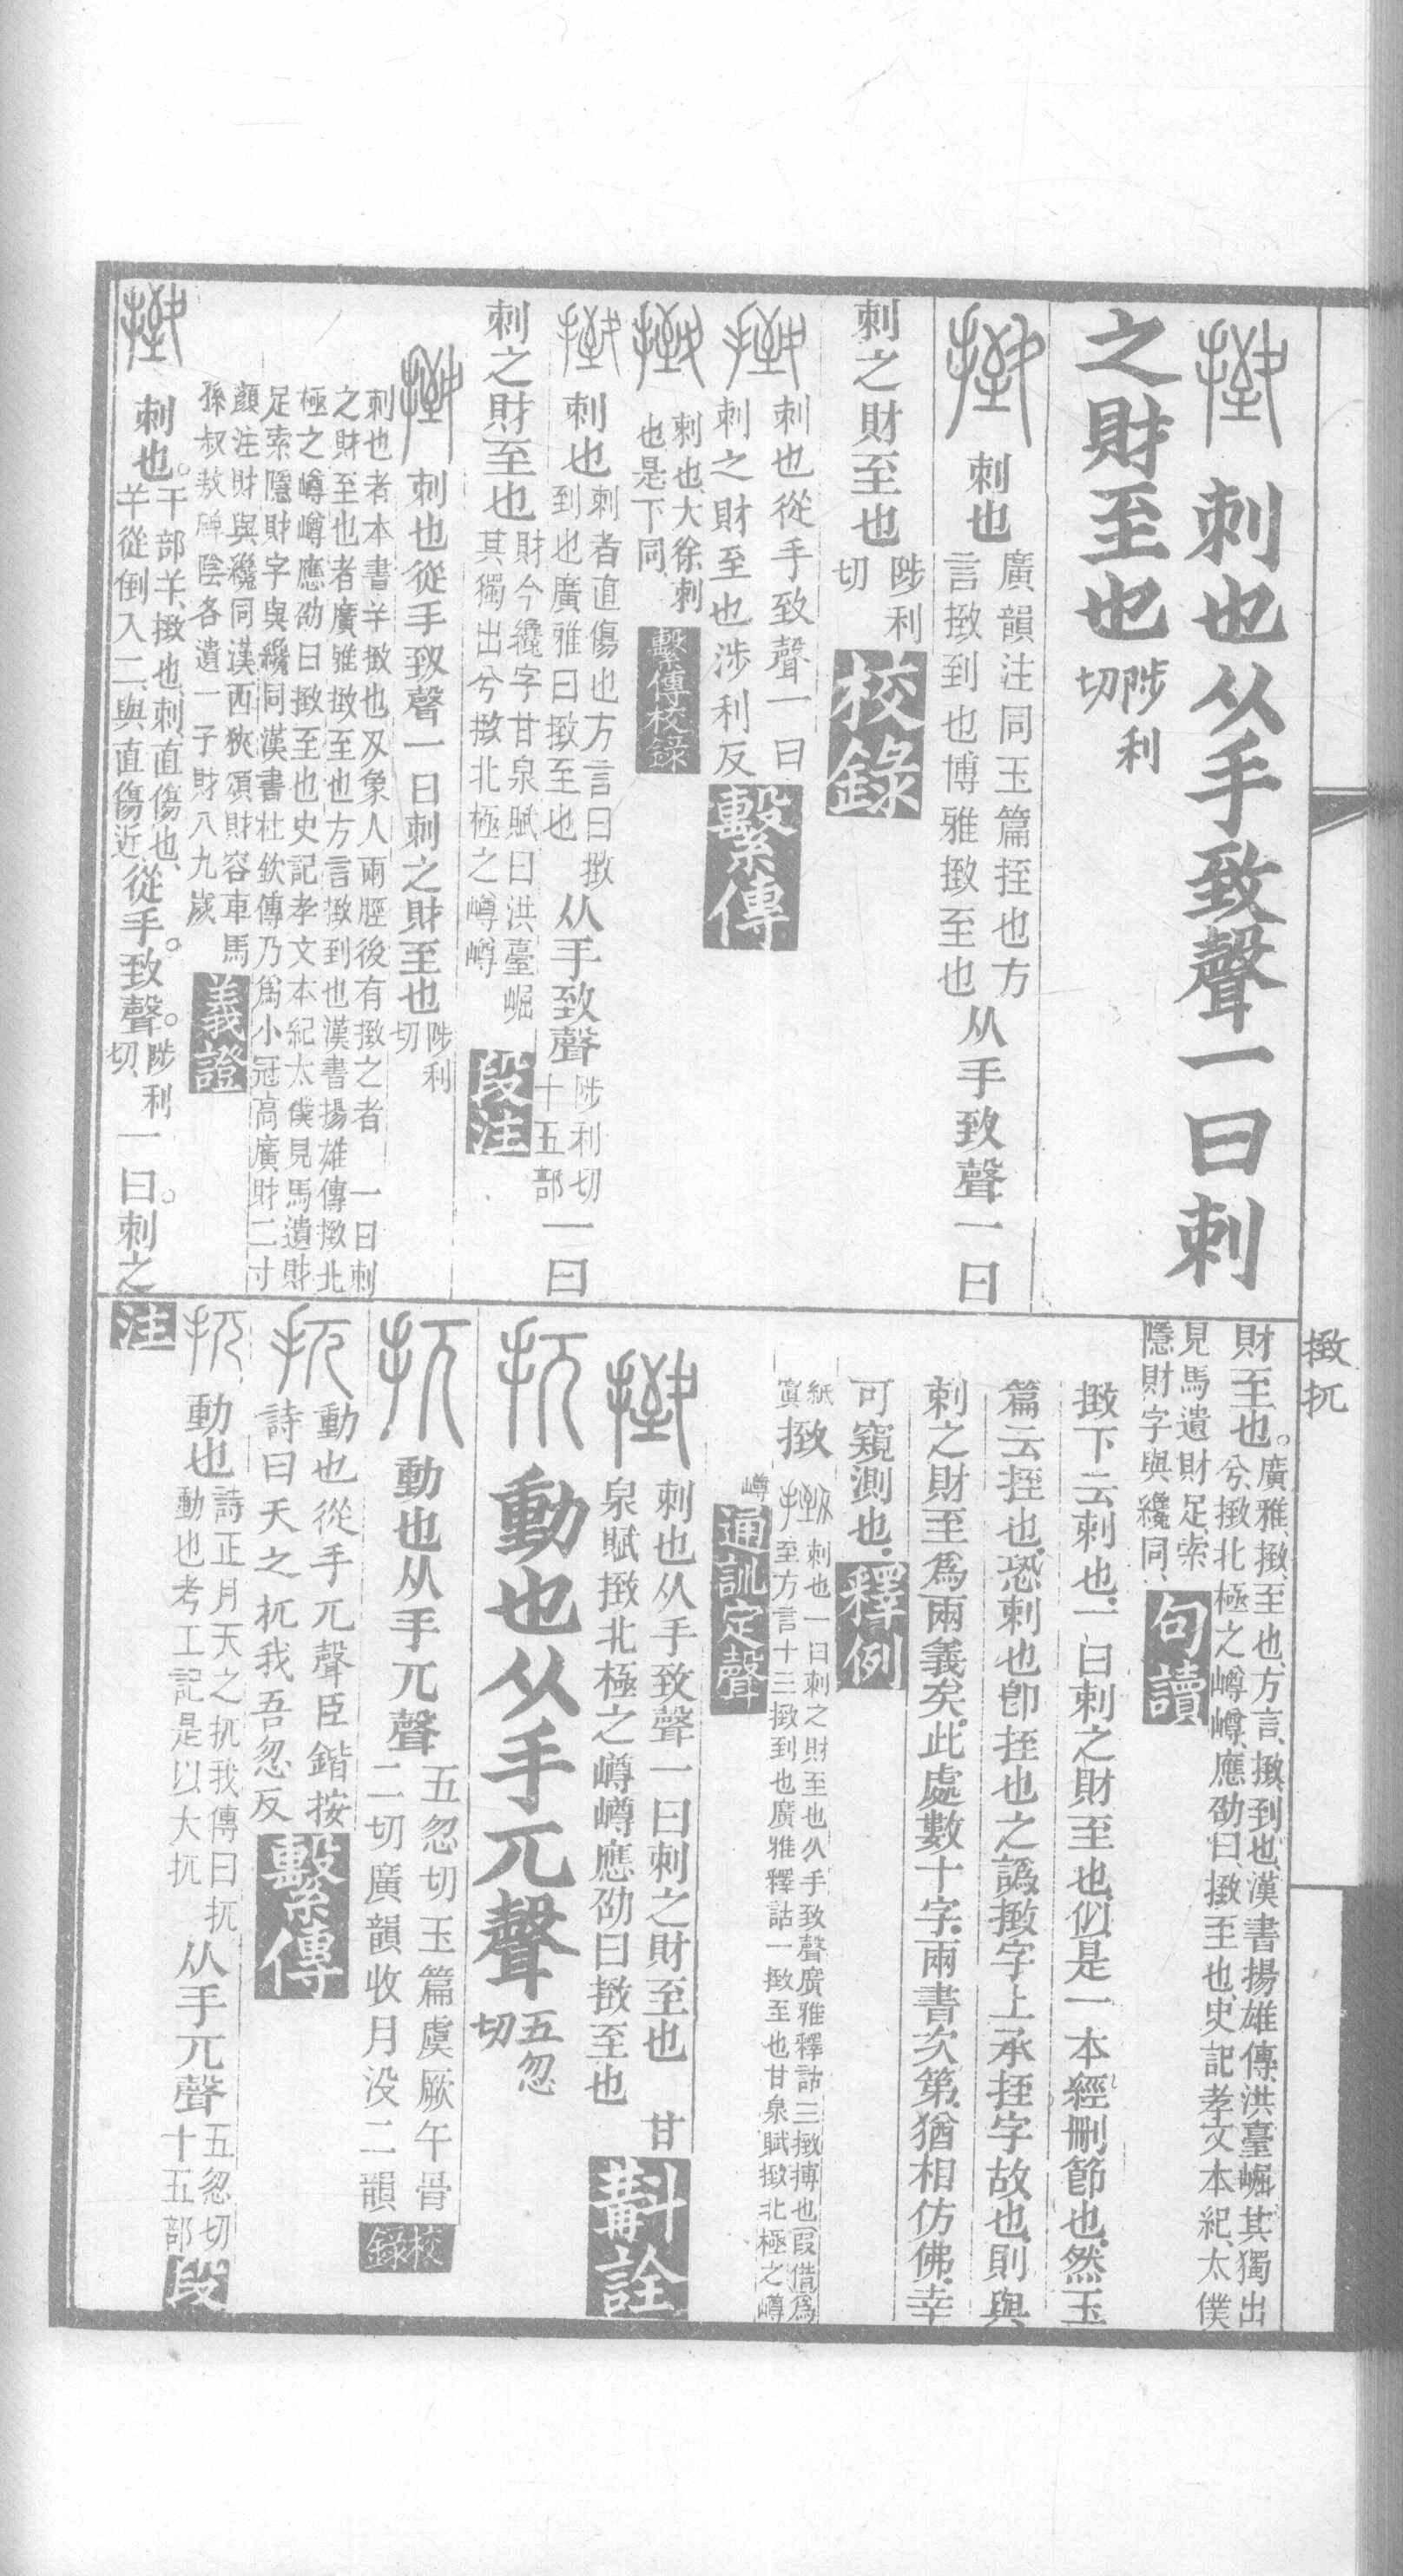 㨖 刺也从手致聲一曰刺
之財至也陟利切
㨖 刺也廣韻注同玉篇挃也方
言㨖到也博雅㨖至也从手致聲一曰
刺之財至也陟利切 校錄
㨖 刺也從手致聲一曰
刺之財至也涉利反 繫傳
㨖 刺也大徐刺
也是下同 繫傳校錄
㨖 刺也刺者直傷也方言曰㨖
到也廣雅曰㨖至也从手致聲陟利切
十五部一曰
刺之財至也財今纔字甘泉賦曰洪臺崛
其獨出兮㨖北極之嶟嶟 段注
㨖 刺也從手致聲一曰刺之財至也陟利切
刺也者本書羊㨖也夂象人兩脛後有㨖之者 一曰刺
之財至也者廣雅㨖至也方言㨖到也漢書揚雄傳㨖北
極之嶟嶟應劭曰㨖至也史記孝文本紀太僕見馬遺財
足索隱財字與纔同漢書杜欽傳乃爲小冠高廣財二寸
顏注財與纔同漢西狹頌財容車馬
孫叔敖碑陰各遺一子財八九歲 義證
㨖 刺也。干部羊、㨖也、刺、直傷也、
羊從倒入二、與直傷近、從手。致聲。陟利切、一曰。刺之
㨖 扤
財至也。廣雅、㨖、至也、方言、㨖、到也、漢書揚雄傳、洪臺崛其獨出
兮、㨖北極之嶟嶟、應劭曰、㨖至也、史記孝文本紀、太僕
見馬遺財足、索
隱財字與纔同、 句讀
㨖下云刺也、一曰刺之財至也、似是一本經刪節也、然玉
篇云挃也、恐刺也卽挃也之譌、㨖字上承挃字故也、則與
刺之財至爲兩義矣、此處數十字、兩書次第、猶相仿佛、幸
可窺測也、 釋例
紙
寘 㨖 㨖 刺也一曰刺之財至也从手致聲廣雅釋詁三㨖搏也叚借爲
至方言十三㨖到也廣雅釋詁一㨖至也甘泉賦㨖北極之嶟
嶟 通訓定聲
㨖 刺也从手致聲一曰刺之財至也 甘
泉賦㨖北極之嶟嶟應劭曰㨖至也 斠詮
扤 動也从手兀聲五忽切
扤 動也从手兀聲五忽切玉篇虞厥午骨
二切廣韻收月没二韻 校錄
扤 動也從手兀聲臣鍇按
詩曰天之扤我吾忽反 繫傳
扤 動也詩正月天之扤我傳曰扤
動也考工記是以大扤从手兀聲五忽切
十五部 段
注